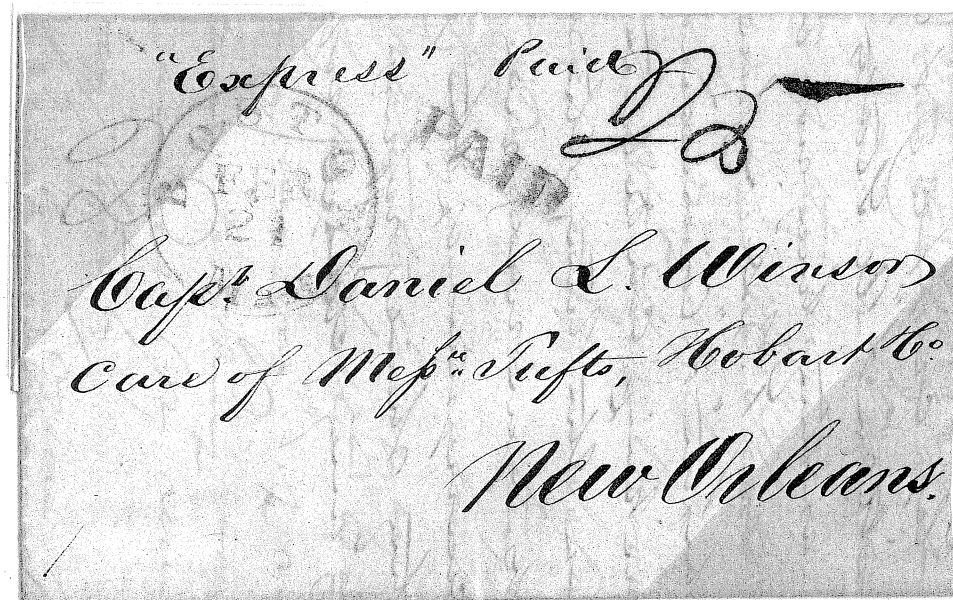 "Express" Paid
PAID
BOSTON
FEB
21
Capt. Daniel L. Winsor
Care of Messrs Tufts, Hobart & Co
New Orleans.